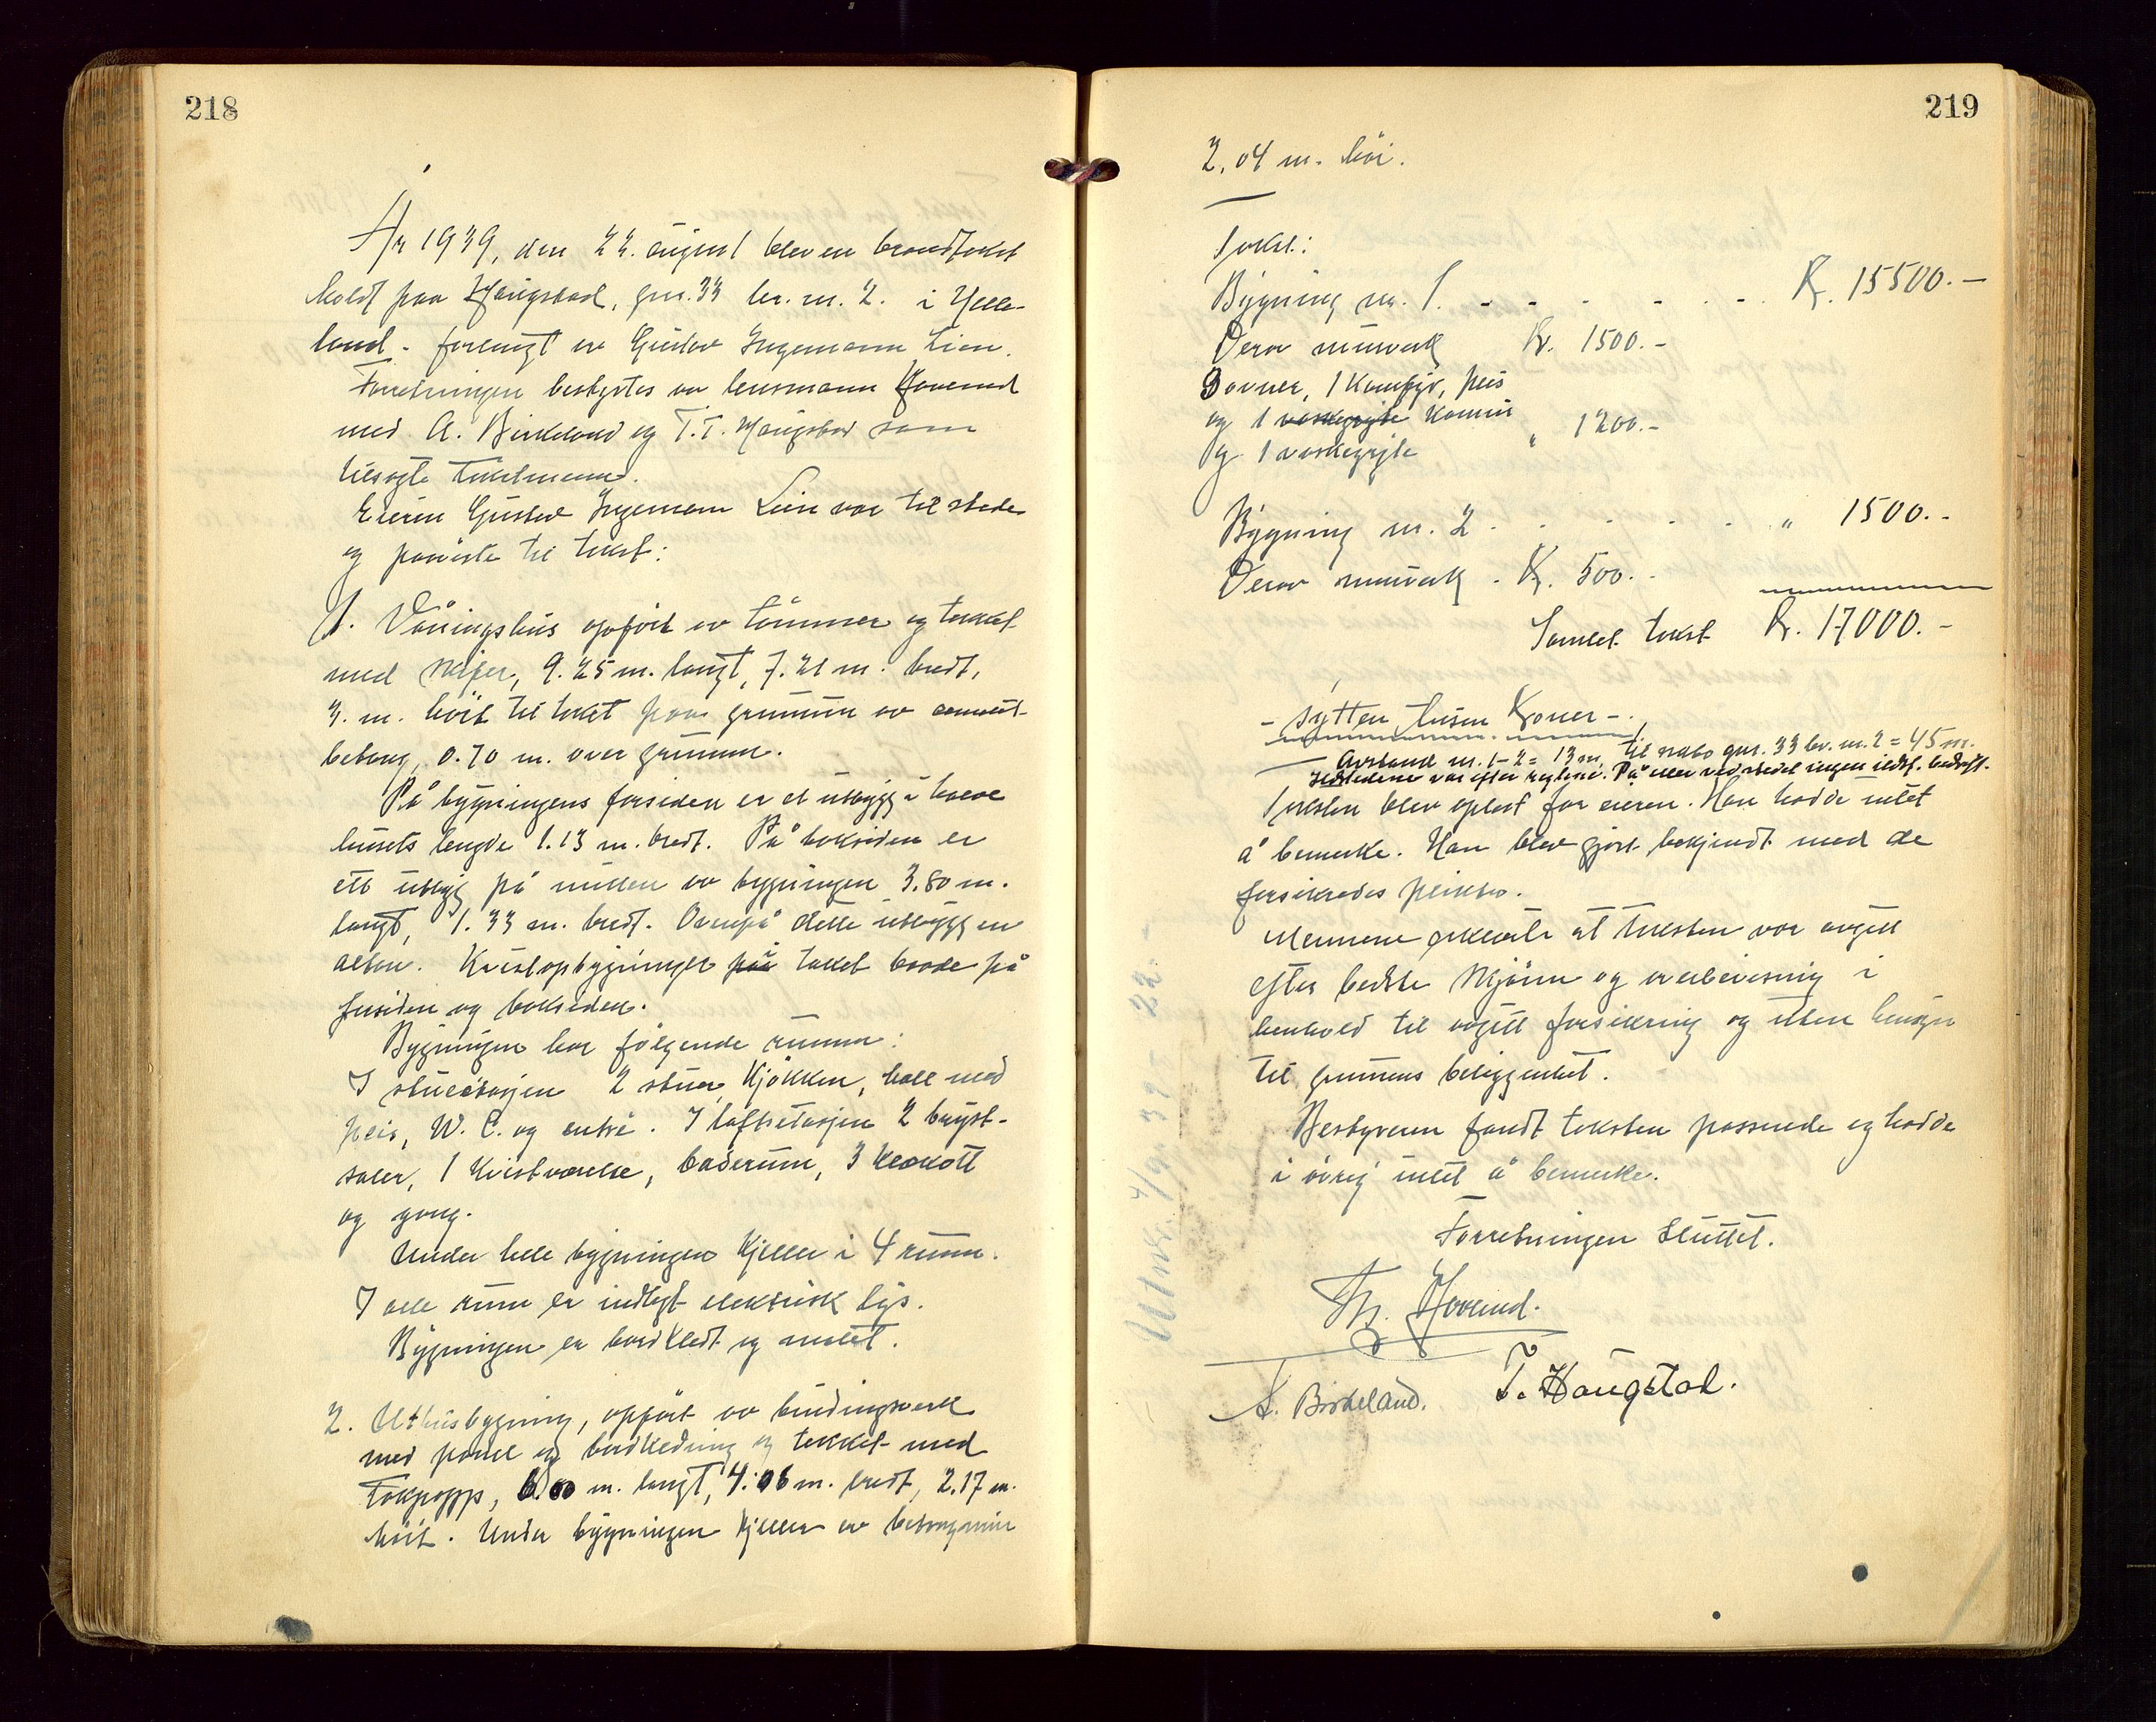 218
År 1939, den 22. august blev en brandtakst
holdt paa Haugstad, gnr. 33 br. nr. 2. i Helle-
land - forlangt av Gustav Ingemann Lien.
Forretningen bestyrtes av lensmann Hovrud
med A. Birkeland og T. T. Haugstad som
tilsagte takstmenn.
Eieren Gustav Ingemann Lien var tilstede
og paaviste til takst:
1. Våningshus opført av tømmer og tekket
med skifer, 9.25 m. langt, 7.21 m. bredt,
3. m. høit til taket paa grunmur av cement-
betong, 0.70 m. over grunnen.
På bygningens forsiden er et utbygg i halve
husets lengde 1.13 m. bredt. På baksiden er
ett utbygg på midten av bygningen 3.80 m.
langt, 1.33 m. bredt. Ovenpå dette utbygg en
altan. Kvistopbygninger på taket baade på
forsiden og baksiden.
Bygningen har følgende rumm:
I stueetasjen 2 stuer, kjøkken, hall med
peis, W. C. og entré. I loftsetasjen 2 bryst-
saler, 1 kvistværelse, baderum, 3 kleskott
og gang.
Under hele bygningen kjeller i 4 rumm.
I alle rum er indlagt elektrisk lys.
Bygningen er bordkledt og malet.
2. Uthusbygning, opført av bindingsverk
med panel og bordkledning og tekket med
takpapp, 6.00 m. langt, 4.06 m. bredt, 2.17 m.
høit. Under bygningen kjeller av betongmur
219
2,04 m. høi.
Takst:
Bygning nr. 1. - - - - - - Kr. 15500.-
Derav murverk Kr. 1500.-
3 ovner, 1 Komfyr, peis
og 1 vaskegryte Kamin
og 1 vaskegryte " 1200.-
Bygning nr. 2 - - - - - " 1500.-
Derav murverk - Kr. 500.-
Samlet takst Kr. 17000.-
- sytten tusen Kroner -.
Avstand nr. 1-2 = 13 m. til nabo gnr. 33 br. nr. 2 = 45 m.
Ildstedene var efter reglene. På eller ved stedet ingen ildsf. bedrift.
Taksten blev oplest for eieren. Han hadde intet
å bemerke. Han blev gjort bekjendt med de
forsikredes plikter.
Mennene erklærte at taksten var avgitt
efter bedste skjønn og overbevisning i
henhold til avgitt forsikring og uten hensyn
til grunnens beliggenhet.
Bestyreren fandt taksten passende og hadde
i øvrig intet å bemerke.
Forretningen sluttet.
Th. Hovrud.
A. Birkeland. T. Haugstad.
Utskr. 4/9 39 - 22 -